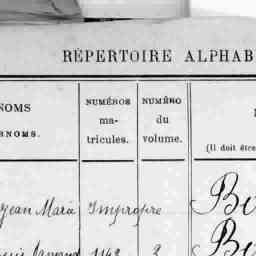 RÉPERTOIRE ALPHAB
NOMS
RNOMS.
NUMÉROS
ma-
tricules.
NUMÉRO
du
volume.
(Il doit être
Jean Maria Impropre Bo
1142 2 Be